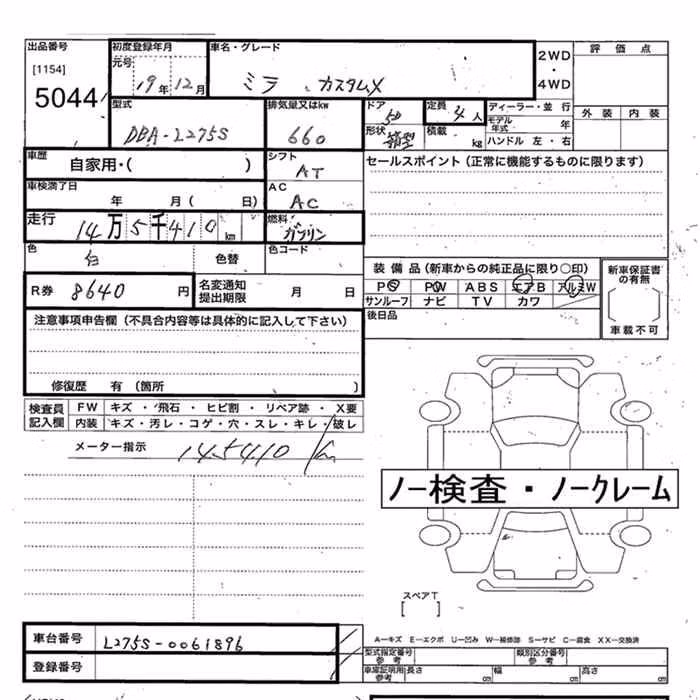 出品番号 初度登録年月 車名・グレード 2WD・4WD 評価点
[1154] 元号 19年12月 ミラ カスタムX
5044 外装 内装
型式 DBA-L275S 排気量又はkw 660 ドア 5D 定員 4人 ディーラー・並行
形状 箱型 積載 kg モデル年式 年
ハンドル 左・右
車歴 自家用・( ) シフト AT セールスポイント(正常に機能するものに限ります)
車検満了日 年 月( 日) AC AC
走行 14万5千410km 燃料 ガソリン
色 白 色替 色コード
装備品(新車からの純正品に限り○印) 新車保証書の有無
R券 8640円 名変通知提出期限 月 日 PS PW ABS エアB アルミW
サンルーフ ナビ TV カワ
注意事項申告欄(不具合内容等は具体的に記入して下さい) 後日品 車載不可
修復歴 有(箇所 )
検査員記入欄 FW キズ・飛石・ヒビ割・リペア跡・X要
内装 キズ・汚レ・コゲ・穴・スレ・キレ・破レ
メーター指示 145410 km
ノー検査・ノークレーム
スペアT
[ ]
車台番号 L275S-0061896 A-キズ E-エクボ U-凹み W-補修跡 S-サビ C-腐食 XX-交換済
登録番号 型式指定番号 参考 類別区分番号 参考
車庫証明用 参考 長さ cm 幅 cm 高さ cm